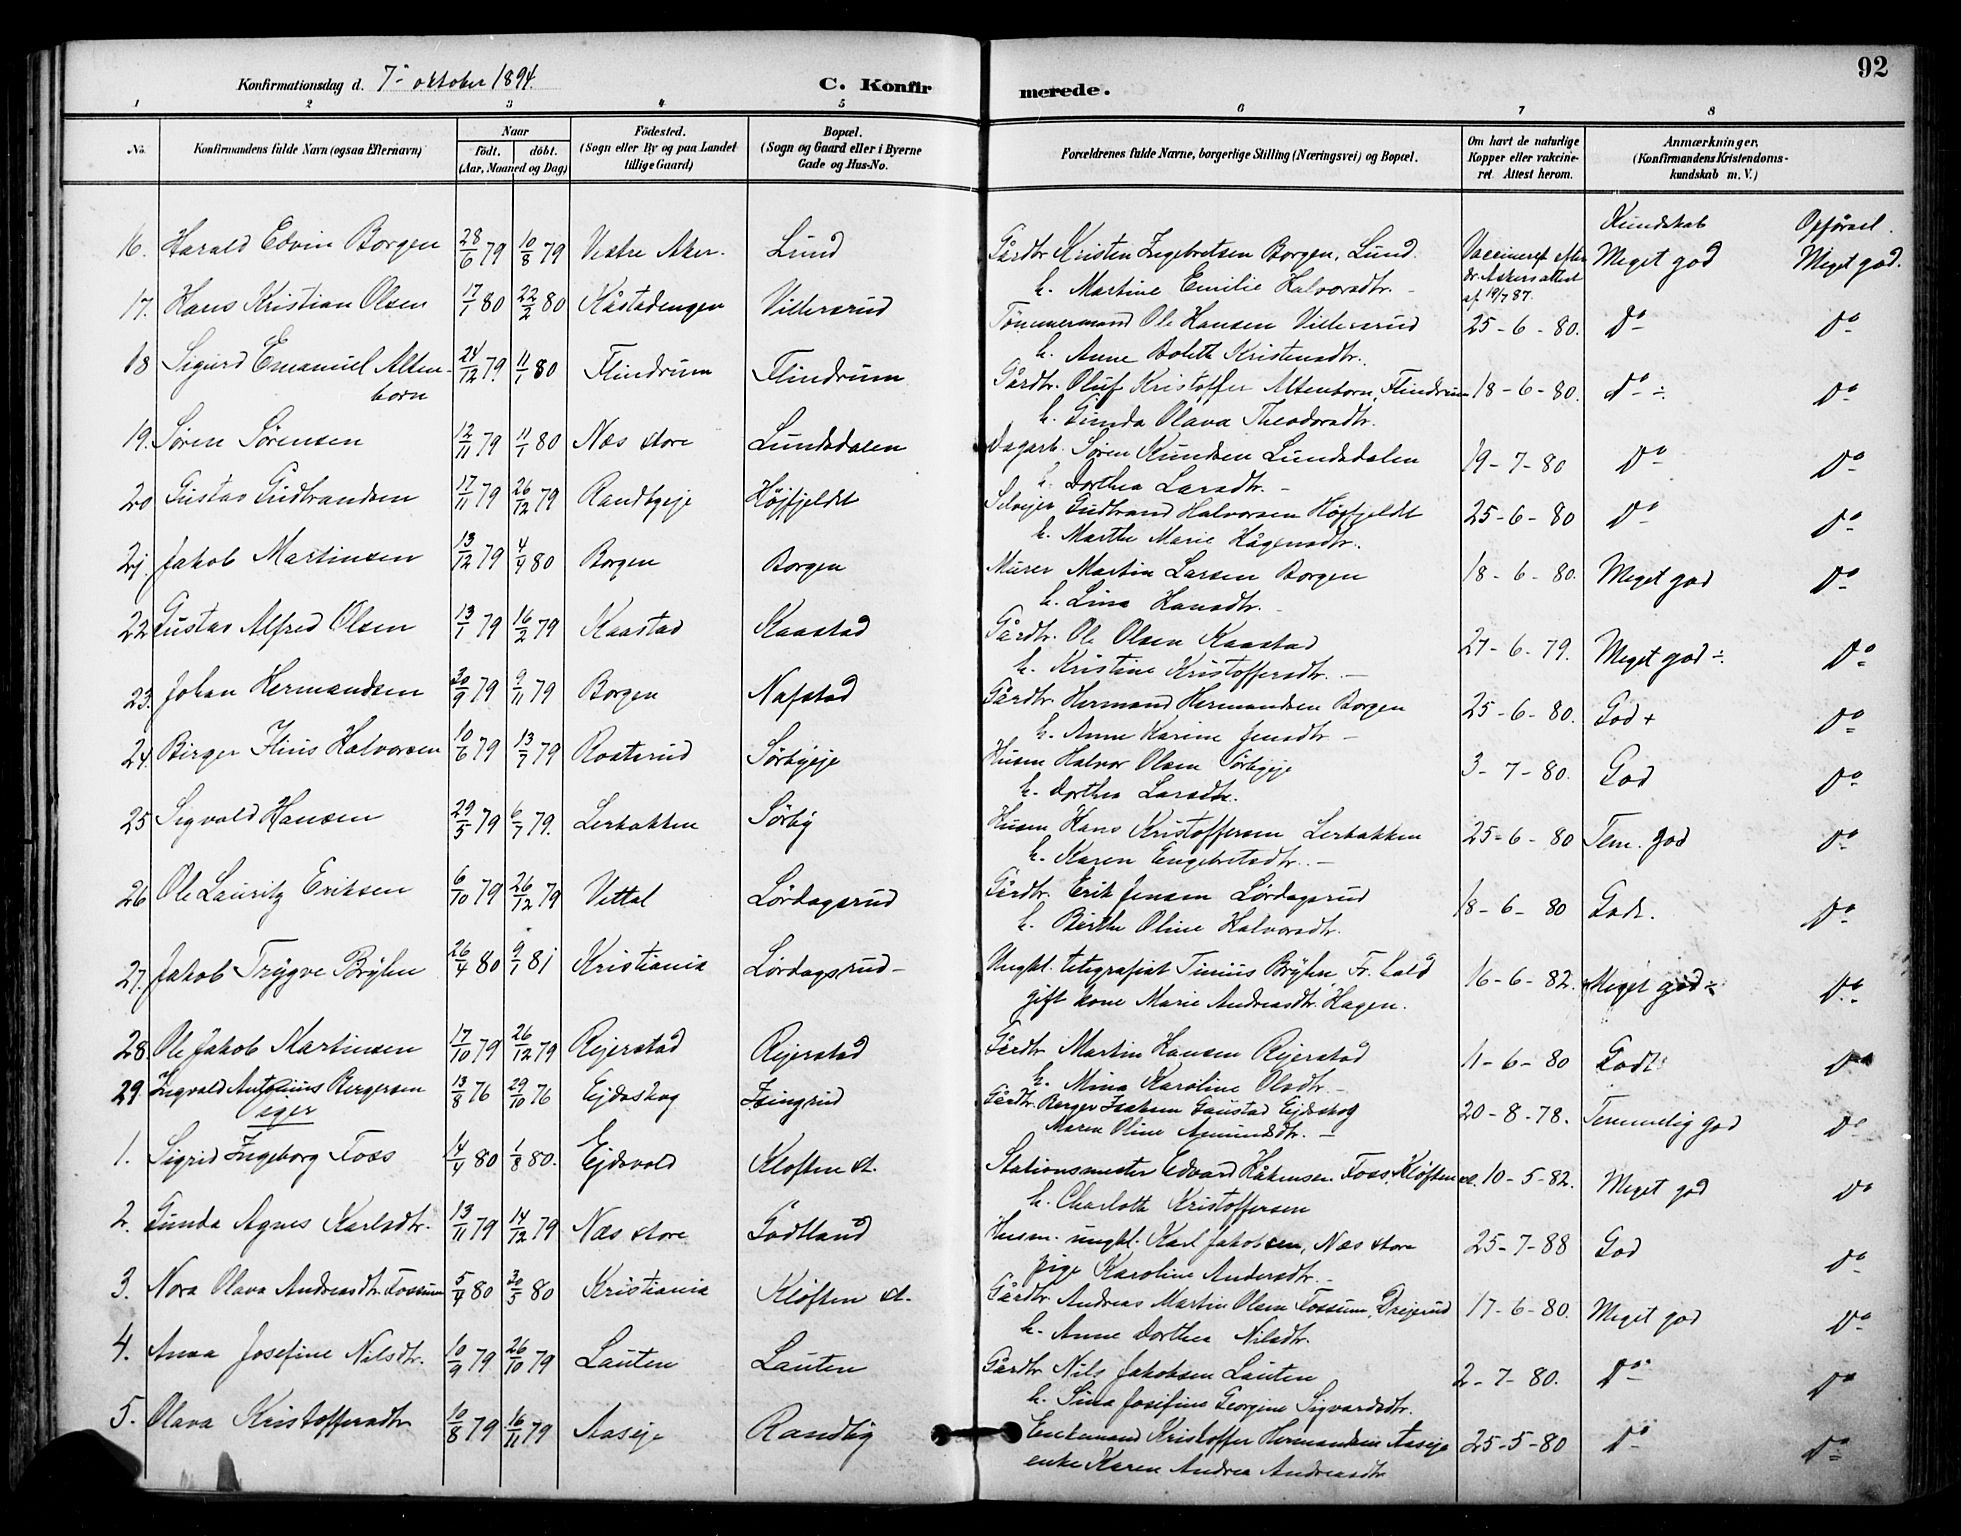 92
Konfirmationsdag d. 7de oktober 1894.
C. Konfirmerede.
1 2 3 4 5 6 7 8
No. Konfirmandens fulde Navn (ogsaa Efternavn) Naar født. døbt. (Aar, Maaned og Dag) Födested. (Sogn eller By og paa Landet tillige Gaard) Bopæl. (Sogn og Gaard eller i Byerne Gade og Hus-No. Forældrenes fulde Navne, borgerlige Stilling (Næringsvei) og Bopæl. Om havt de naturlige Kopper eller vakcineret. Attest herom. Anmærkninger. (Konfirmandens Kristendomskundskab m. V.)
Kundskab Opførsel.
16. Harald Edvin Borgen 28/6 79 10/8 79 Vestre Aker. Lund Gårdbr Kristen Ingebretsen Borgen, Lund. Vaccineret efter Meget god Meget god.
h. Martine Emilie Halvorsdtr. dr. Askers attest
af 19/7 87.
17. Hans Kristian Olsen 17/1 80 22/2 80 Kåstadengen Villersrud Tømmermand Ole Hansen Villersrud 25-6-80. Do Do
h. Anne Bolette Kristensdtr.
18 Sigurd Emanuel Alten- 24/12 79. 11/1 80 Flindrum Flindrum Gårdbr. Oluf Kristoffer Altenborn, Flindrum 18-6-80. Do ÷ Do
born h. Gunda Olava Theodorsdtr.
19. Søren Sørensen 12/11 79 11/1 80 Næs store Lundsdalen Dagarb. Søren Knudsen Lundsdalen 19-7-80 Do Do
h. Dorthea Larsdtr.
20 Gustav Gudbrandsen 17/11 79 26/12 79 Randbyeje Højfjeldet Selvejer Gudbrand Halvorsen Högfjeldet 25-6-80 Do Do
h. Marthe Marie Hågensdtr.
21. Jakob Martinsen 13/12 79 4/4 80 Borgen Borgen Murer Martin Larsen Borgen 18-6-80. Meget god Do
h. Lina Hansdtr.
22 Gustav Alfred Olsen 13/1 79 16/2 79 Kaastad Kaastad Gårdbr. Ole Olsen Kaastad 27-6-79. Meget god ÷. Do
h. Kristine Kristoffersdtr.
23. Johan Hermandsen 30/9 79 9/11 79 Borgen Nafstad Gårdbr Hermand Hermandsen Borgen 25-6-80. God + Do
h. Anne Karine Jensdtr
24. Birger Julius Halvorsen 10/6 79 13/7 79 Rosterud Sørbyeje Husm Halvor Olsen Sørbyeje 3-7-80. God Do
h. Dorthea Larsdtr.
25 Sigvald Hansen 29/5 79 6/7 79. Lerbakken Sørby Husm Hans Kristoffersen Lerbakken 25-6-80 Tem. god Do
h. Karen Engebretsdtr.
26 Ole Lauritz Eriksen 6/10 79 26/12 79 Vittal Lørdagsrud Gårdbr. Erik Jensen Lørdagsrud 18-6-80 Godt. Do
h. Birthe Oline Halvorsdtr.
27. Jakob Trygve Bryhn 26/4 80 9/1 81 Kristiania Lørdagsrud Ungkl. telegrafist Tinius Bryhn, Fr. hald 16-6-82. Meget god ÷ Do
gift kone Marie Andreasdtr. Hagen.
28 Ole Jakob Martinsen 17/10 79 26/12 79 Rejerstad Rejerstad Gårdbr Martin Hansen Rejerstad 11-6-80 Godt Do
h. Mina Karoline Olsdtr.
29. Ingvald Antonius Bergersen 13/8 76 29/10 76 Ejdskog Isingrud Gårdbr. Berger Isaksen Gaustad Ejdskog 20-8-78. Temmelig god Do
Maren Oline Amundsdtr.
Piger
1. Sigrid Ingeborg Foss 14/4 80 1/8 80. Ejdsvold Kløften st. Stationsmester Edvard Håkensen Foss, Kløften st. 10-5-82. Meget god Do
h. Charlotte Kristoffersen
2. Gunda Agnes Karlsdtr. 13/11 79 14/12 79 Næs store Godtland Husm. ungkl. Karl Jakobsen, Næs store 25-7-88 God Do
pige Karoline Andersdtr.
3. Nora Olava Andreasdtr. Fossum 5/4 80 30/5 80 Kristiania Kløften st. Gårdbr Andreas Martin Olsen Fossum, Drejerud 17-6-80. Meget god Do
h. Anne Dorthea Nilsdtr.
4. Anna Josefine Nilsdtr. 10/9 79 26/10 79 Lauten Lauten Gårdbr Nils Jakobsen Lauten 2-7-80. Do Do
h. Sina Josefine Georgine Sigvardsdtr.
5. Olava Kristoffersdtr 10/8 79 16/11 79 Aaseje Randby Enkemand Kristoffer Hermandsen Aaseje 25-5-80 Do Do
enke Karen Andrea Andreasdtr